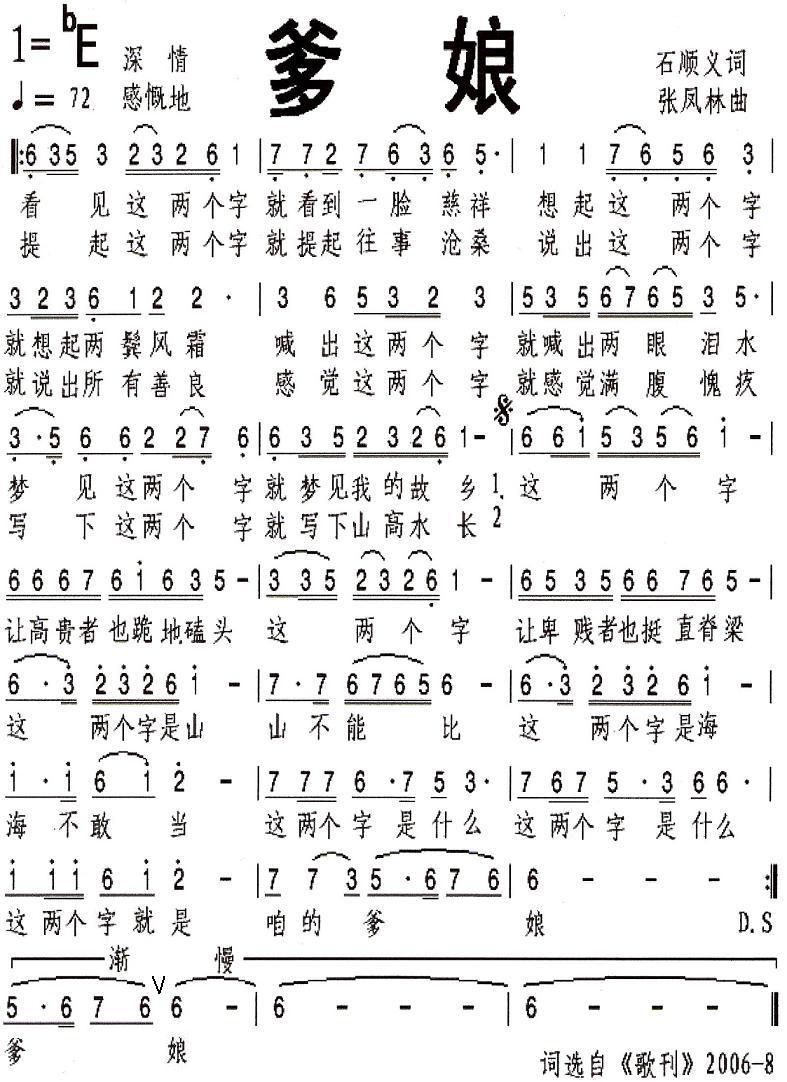 1=♭E 深情 爹娘 石顺义词
♩=72 感慨地 张凤林曲
‖:6 35 3 23 26 1 | 7 7 2 7 6·3 6 5· | 1 1 7 6 5 6 3 |
看见这两个字就看到一脸慈祥 想起这两个字
提起这两个字就提起往事沧桑 说出这两个字
3 23 6 1 2 2· | 3 6 5 3 2 3 | 5 3 5 6 7 6 5 3 5· |
就想起两鬓风霜 喊出这两个字就喊出两眼泪水
就说出所有善良 感觉这两个字就感觉满腹愧疚
3·5 6 6 2 2 7 6 | 6 3 5 2 3 2 6 1- | 6 6 1 5 3 5 6 1- |
梦见这两个字就梦见我的故乡 1. 这两个字
写下这两个字就写下山高水长 2
6 6 6 7 6 1 6 3 5- | 3 3 5 2 3 2 6 1- | 6 5 3 5 6 6 7 6 5- |
让高贵者也跪地磕头 这两个字 让卑贱者也挺直脊梁
6·3 2 3 2 6 1- | 7·7 6 7 6 5 6- | 6·3 2 3 2 6 1- |
这两个字是山 山不能比 这两个字是海
1·1 6 1 2- | 7 7 7 6·7 5 3· | 7 6 7 5·3 6 6· |
海不敢当 这两个字是什么 这两个字是什么
1 1 1 6 1 2- | 7 7 3 5·6 7 6 | 6 - - - :‖
这两个字就是 咱的爹娘 D.S
渐慢
5·6 7 6 V 6 - | 6 - - - | 6 - - - ‖
爹娘
词选自《歌刊》2006-8